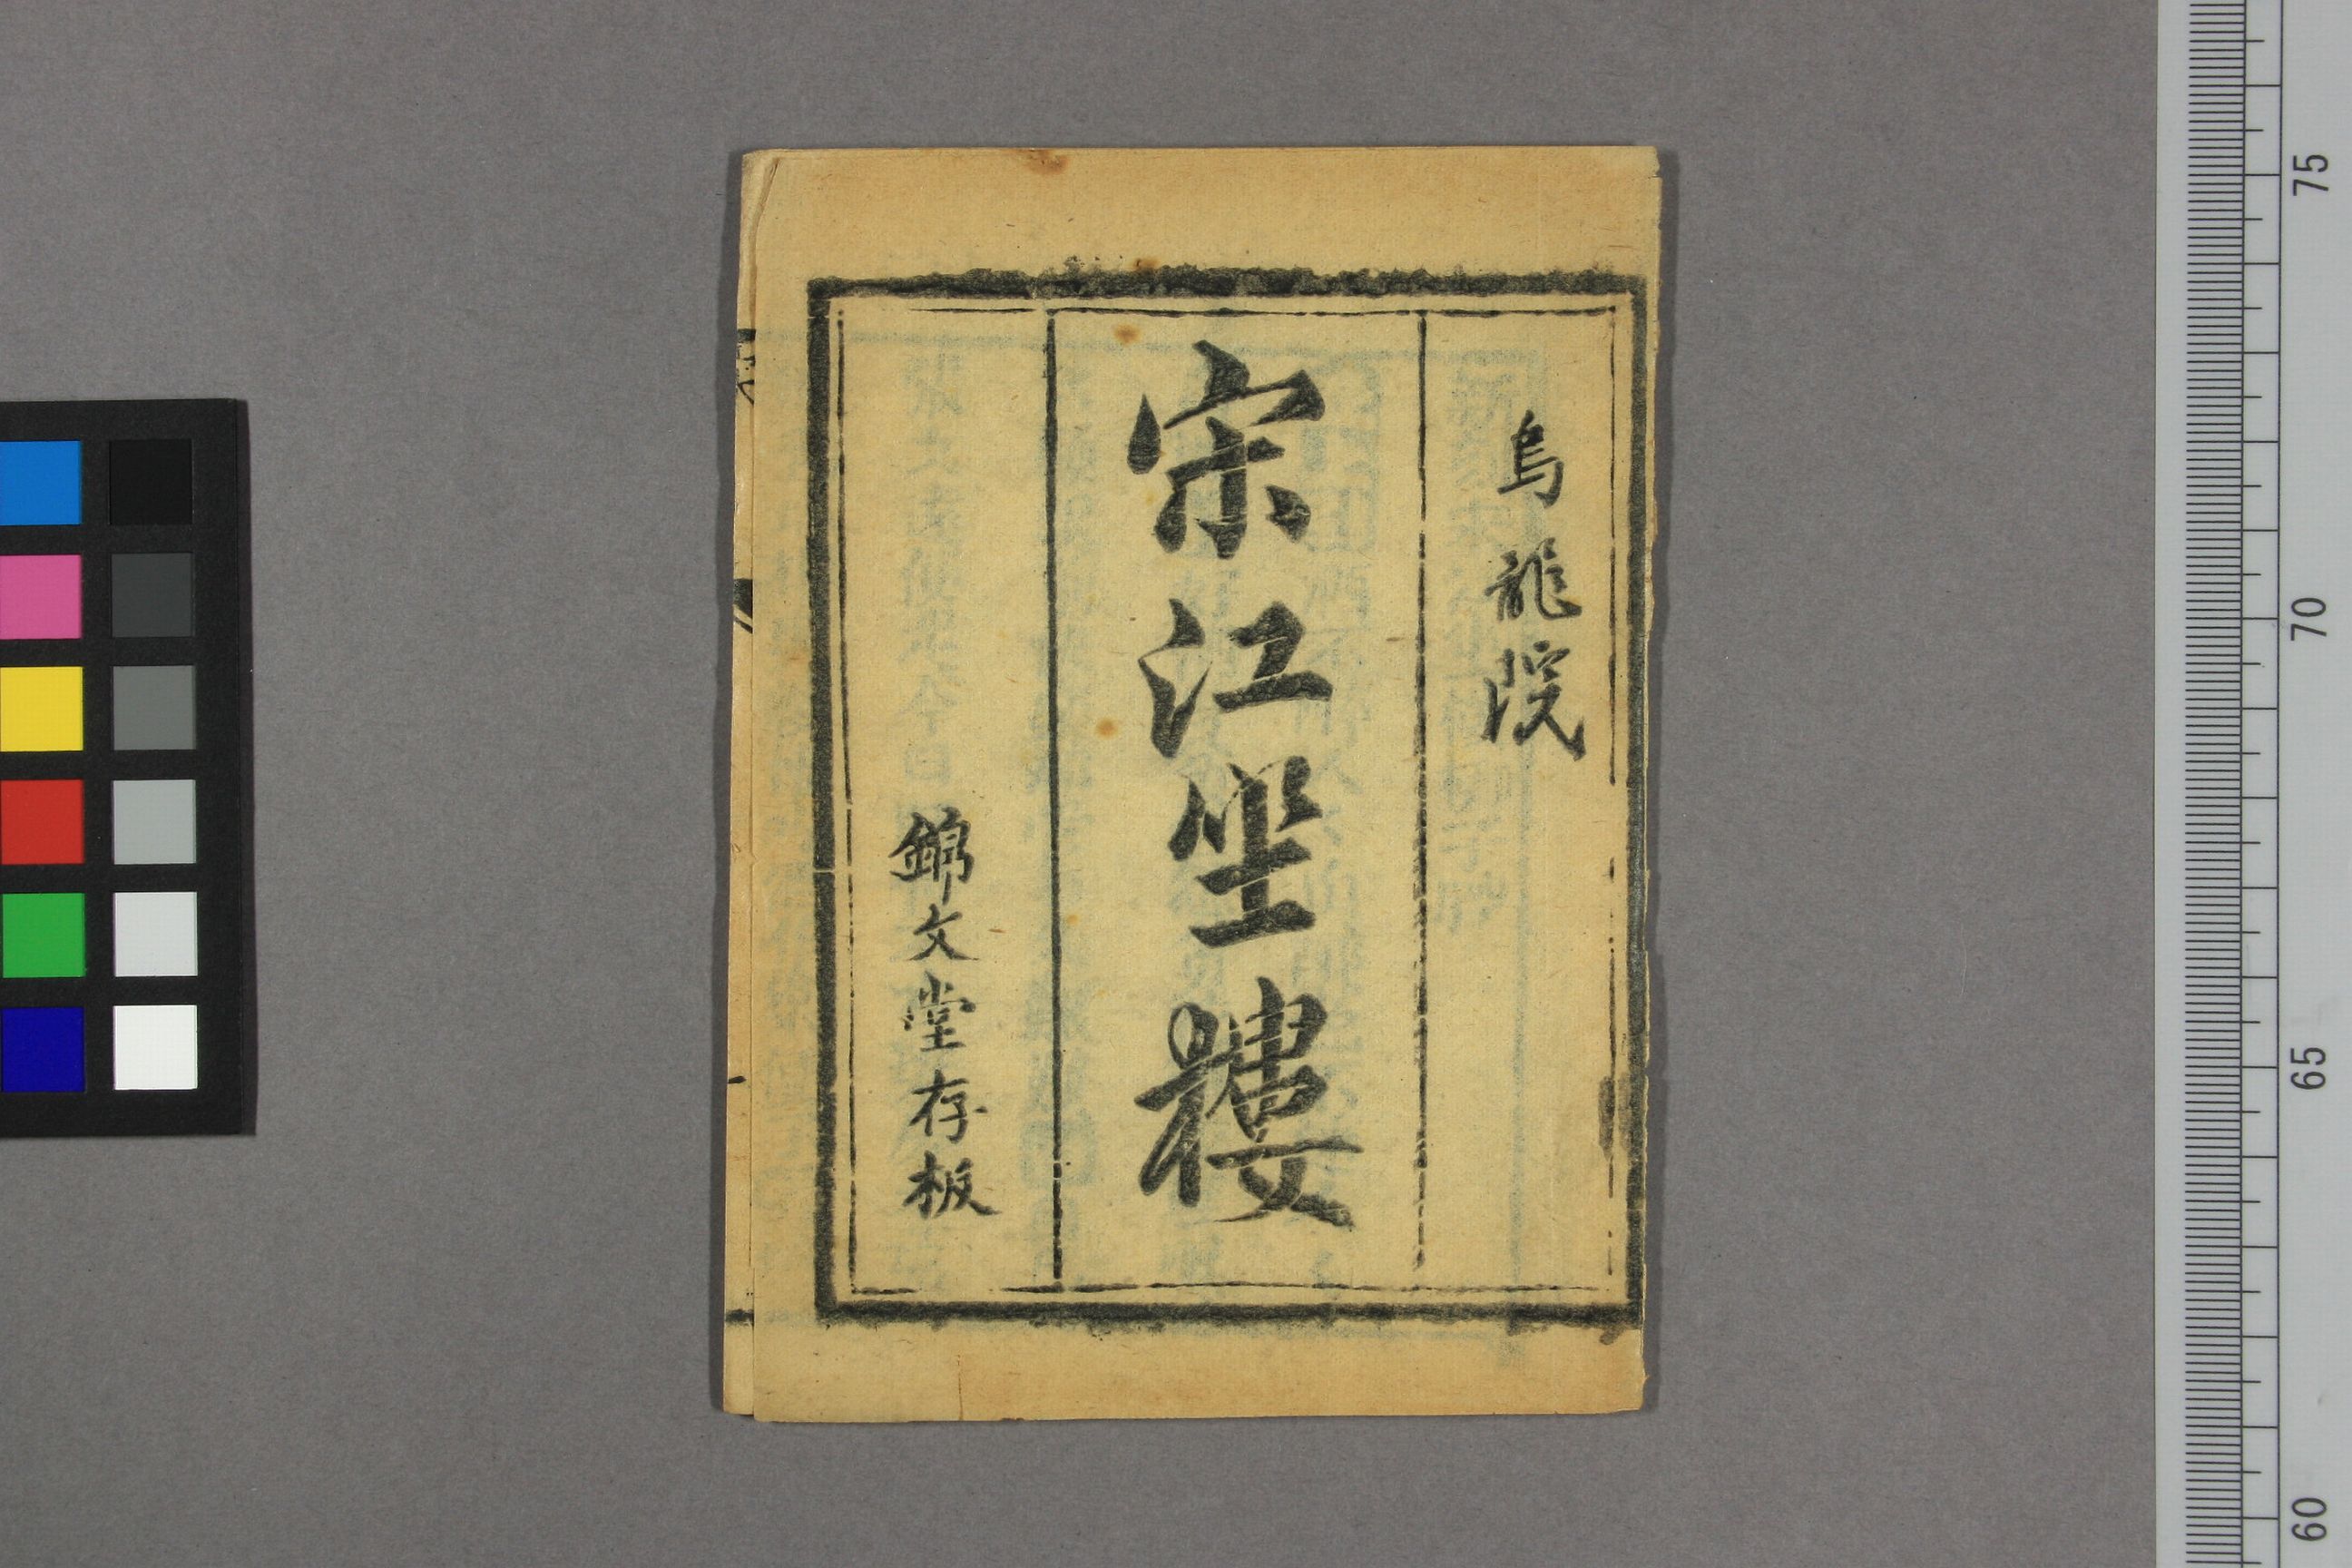 烏龍院
宋江坐樓
錦文堂存板
75
70
65
60